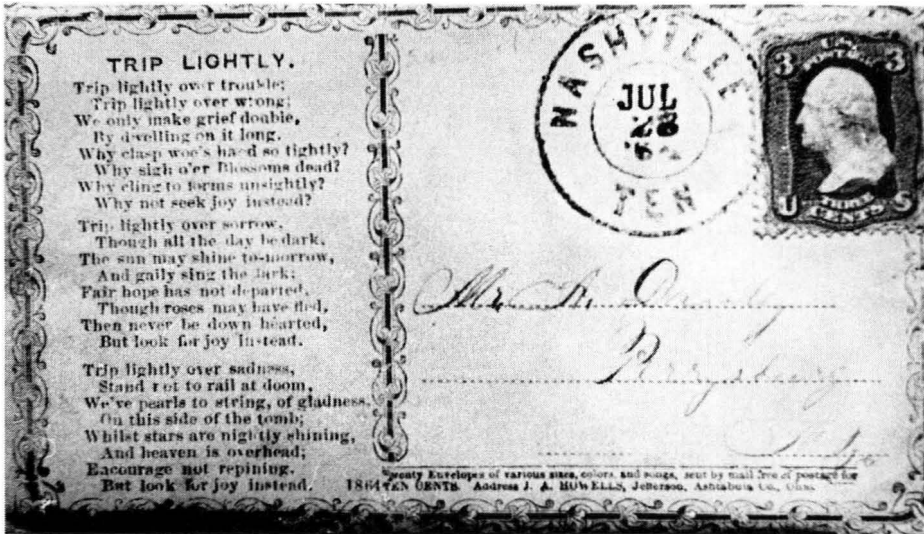 TRIP LIGHTLY.
Trip lightly over trouble;
Trip lightly over wrong;
We only make grief double,
By dwelling on it long.
Why clasp woe's hand so tightly?
Why sigh o'er Blossoms dead?
Why cling to forms unsightly?
Why not seek joy instead?
Trip lightly over sorrow,
Though all the day be dark,
The sun may shine to-morrow,
And gaily sing the lark;
Fair hope has not departed,
Though roses may have fled,
Then never be down hearted,
But look for joy instead.
Trip lightly over sadness,
Stand not to rail at doom,
We've pearls to string, of gladness,
On this side of the tomb;
Whilst stars are nightly shining,
And heaven is overhead;
Encourage not repining,
But look for joy instead.
1864
NASHVILLE
JUL
28
TEN
3 U.S. POSTAGE 3
U THREE CENTS S
Mr. A.
Perrysburg
Twenty Envelopes of various sizes, colors, and songs, sent by mail free of postage for
TEN CENTS. Address J. A. HOWELLS, Jefferson, Ashtabula Co., Ohio.